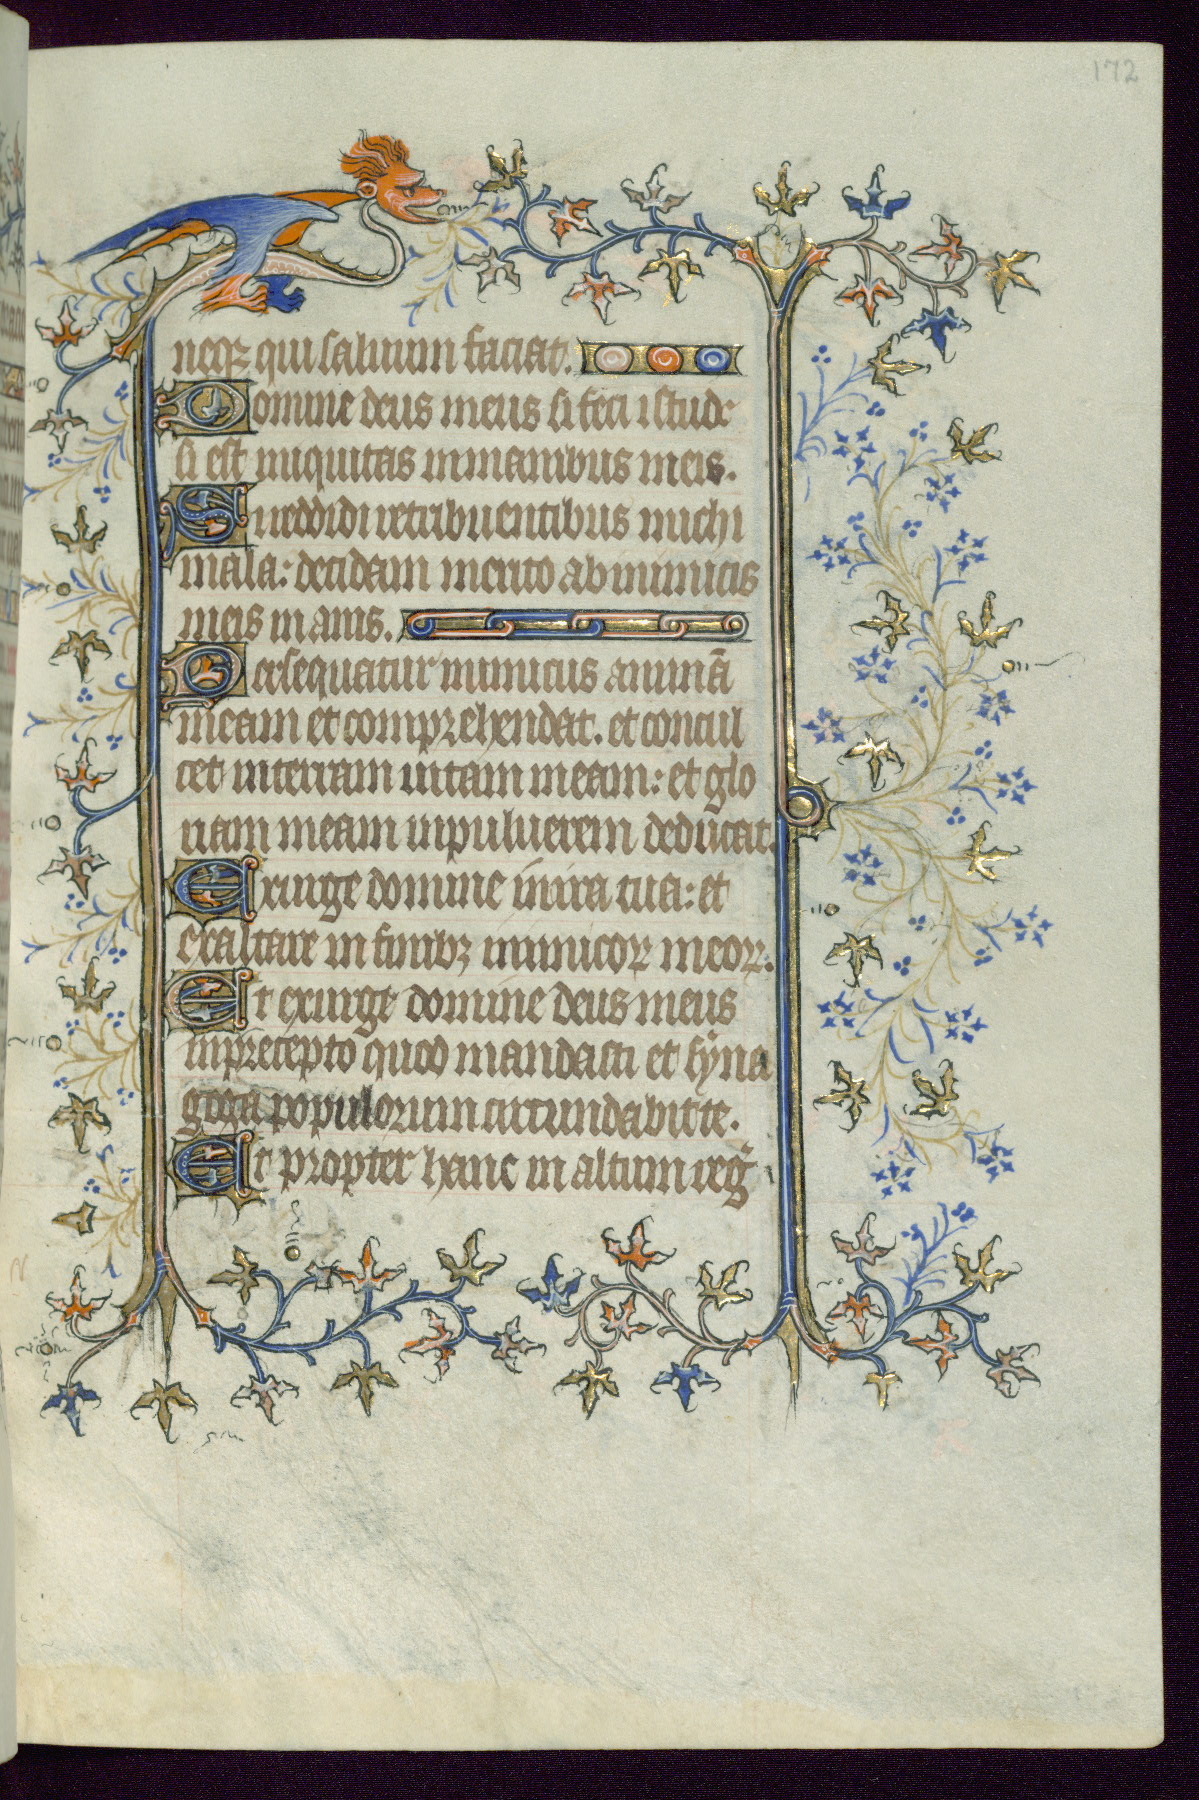 172
neqꝫ qui saluum faciat.
Domine deus meus si feci istud:
si est iniquitas in manibus meis.
Si reddidi retribuentibus michi
mala: decidam merito ab inimicis
meis inanis.
Persequatur inimicus animā
meam et comprehendat. et concul
cet in terram uitam meam: et glo
riam meam in puluerem deducat.
Exurge domine in ira tua: et
exaltare in finibꝫ inimicoꝝ meoꝝ.
Et exurge domine deus meus
in precepto quod mandasti et syna
goga populorum circundabit te.
Et propter hanc in altum reg̅